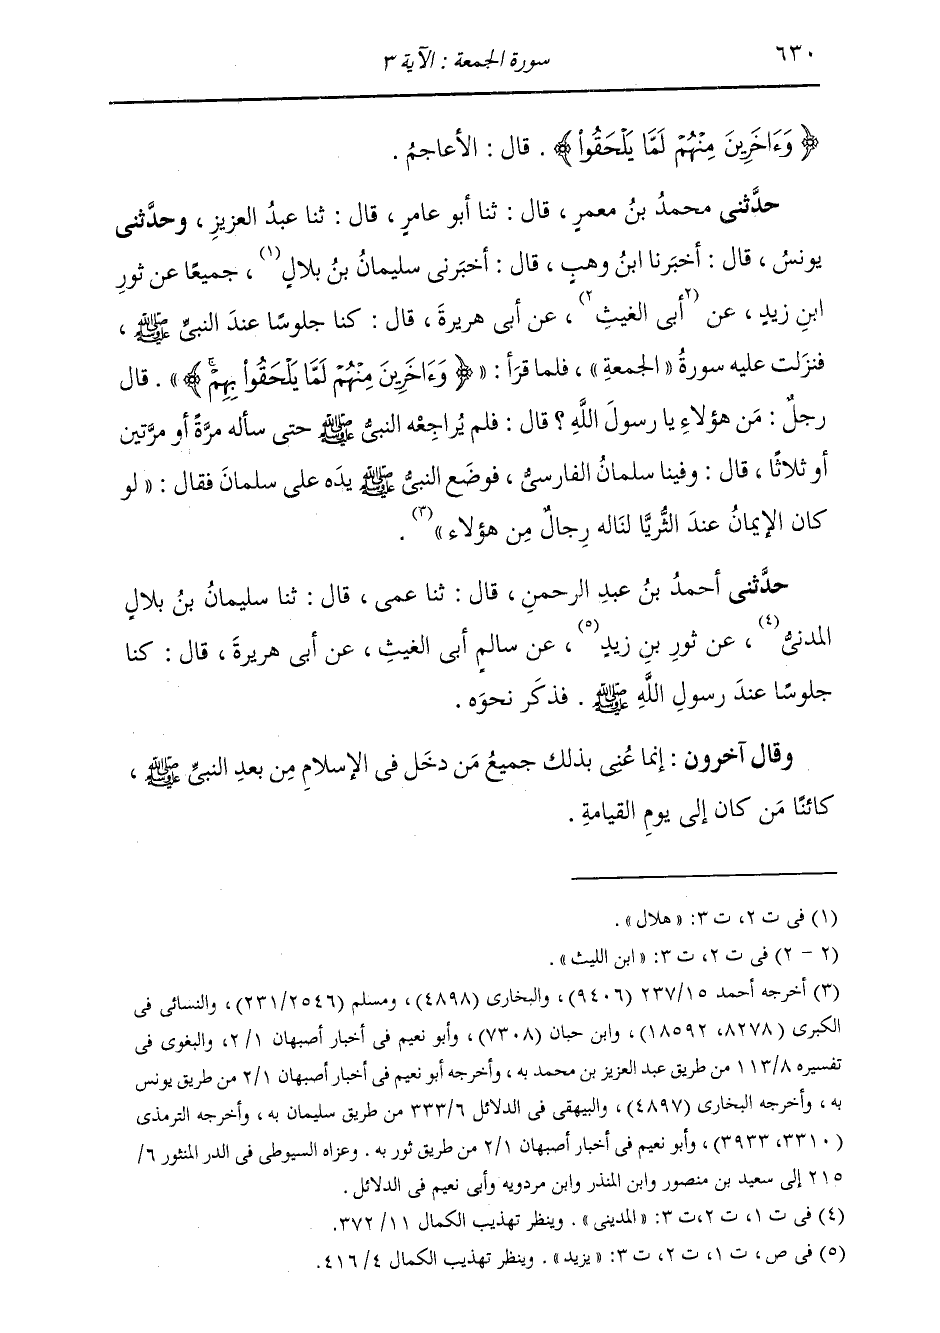 ٦٣٠
سورة الجمعة : الآية ٣
﴿ وَءَاخَرِينَ مِنْهُمْ لَمَّا يَلْحَقُواْ ﴾ . قال : الأعاجمُ .
حدَّثنى محمدُ بنُ معمرٍ ، قال : ثنا أبو عامرٍ ، قال : ثنا عبدُ العزيزِ ، وحدَّثنى
يونسُ ، قال : أخبَرنا ابنُ وهبٍ ، قال : أخبَرنى سليمانُ بنُ بلالٍ(١) ، جميعًا عن ثورِ
ابنِ زيدٍ ، عن (٢أبى الغيثِ٢) ، عن أبى هريرةَ ، قال : كنا جلوسًا عندَ النبىِّ ﷺ ،
فنزَلت عليه سورةُ « الجمعةِ » ، فلما قرَأ : « ﴿ وَءَاخَرِينَ مِنْهُمْ لَمَّا يَلْحَقُواْ بِهِمْۚ ﴾ » . قال
رجلٌ : مَن هؤلاءِ يا رسولَ اللَّهِ ؟ قال : فلم يُراجِعْه النبىُّ ﷺ حتى سأله مرَّةً أو مرَّتين
أو ثلاثًا ، قال : وفينا سلمانُ الفارسىُّ ، فوضَع النبىُّ ﷺ يدَه على سلمانَ فقال : « لو
كان الإيمانُ عندَ الثُّريَّا لنَاله رِجالٌ مِن هؤلاء »(٣) .
حدَّثنى أحمدُ بنُ عبدِ الرحمنِ ، قال : ثنا عمى ، قال : ثنا سليمانُ بنُ بلالٍ
المدنىُّ(٤) ، عن ثورِ بنِ زيدٍ(٥) ، عن سالمٍ أبى الغيثِ ، عن أبى هريرةَ ، قال : كنا
جلوسًا عندَ رسولِ اللَّهِ ﷺ . فذكَر نحوَه .
وقال آخرون : إنما عُنِى بذلك جميعُ مَن دخَل فى الإسلامِ مِن بعدِ النبىِّ ﷺ ،
كائنًا مَن كان إلى يومِ القيامةِ .
(١) فى ت ٢، ت ٣: « هلال » .
(٢ - ٢) فى ت ٢، ت ٣: « ابن الليث » .
(٣) أخرجه أحمد ٢٣٧/١٥ (٩٤٠٦)، والبخارى (٤٨٩٨)، ومسلم (٢٣١/٢٥٤٦)، والنسائى فى
الكبرى (٨٢٧٨، ١٨٥٩٢)، وابن حبان (٧٣٠٨)، وأبو نعيم فى أخبار أصبهان ٢/١، والبغوى فى
تفسيره ١١٣/٨ من طريق عبد العزيز بن محمد به ، وأخرجه أبو نعيم فى أخبار أصبهان ٢/١ من طريق يونس
به ، وأخرجه البخارى (٤٨٩٧)، والبيهقى فى الدلائل ٣٣٣/٦ من طريق سليمان به ، وأخرجه الترمذى
(٣٣١٠، ٣٩٣٣)، وأبو نعيم فى أخبار أصبهان ٢/١ من طريق ثور به . وعزاه السيوطى فى الدر المنثور ٦/
٢١٥ إلى سعيد بن منصور وابن المنذر وابن مردويه وأبى نعيم فى الدلائل .
(٤) فى ت ١، ت ٢، ت ٣: « المدينى » . وينظر تهذيب الكمال ٣٧٢/١١.
(٥) فى ص ، ت ١، ت ٢، ت ٣: « يزيد » . وينظر تهذيب الكمال ٤١٦/٤.